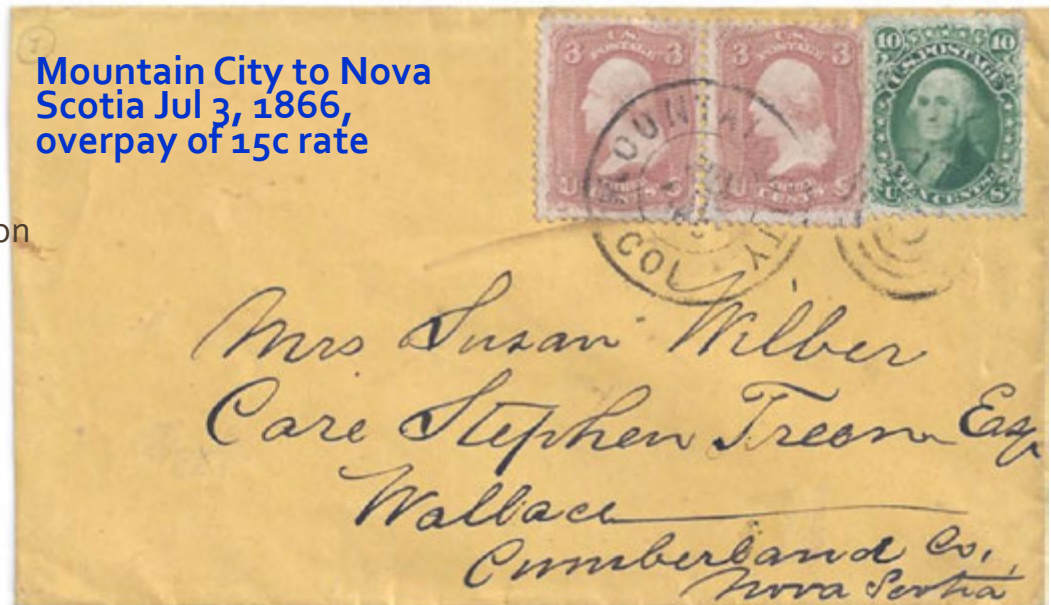 Mountain City to Nova
Scotia Jul 3, 1866,
overpay of 15c rate
on
U.S.
POSTAGE
3 3
U THREE CENTS S
U.S.
POSTAGE
3 3
U THREE CENTS S
10 10
U.S. POSTAGE
U TEN CENTS S
MOUNTAIN CITY
COL
Mrs Susan Wilber
Care Stephen Esq
Wallace
Cumberland Co,
Nova Scotia